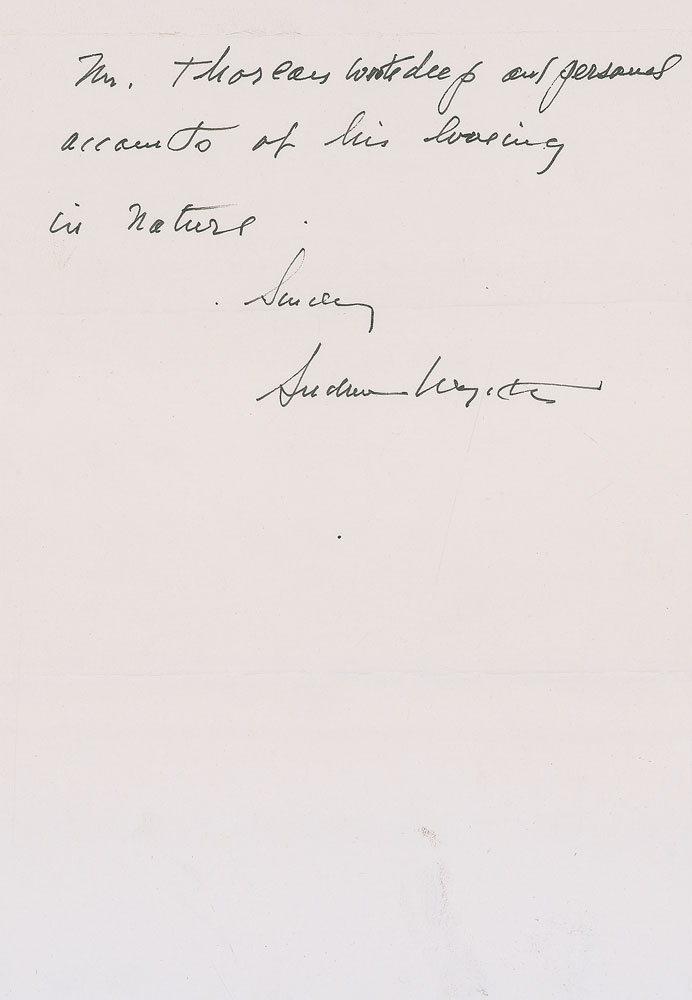 Mr. Thoreau wrote deep and personal
accounts of his
in nature.
Sincerely
Andrew Wyeth